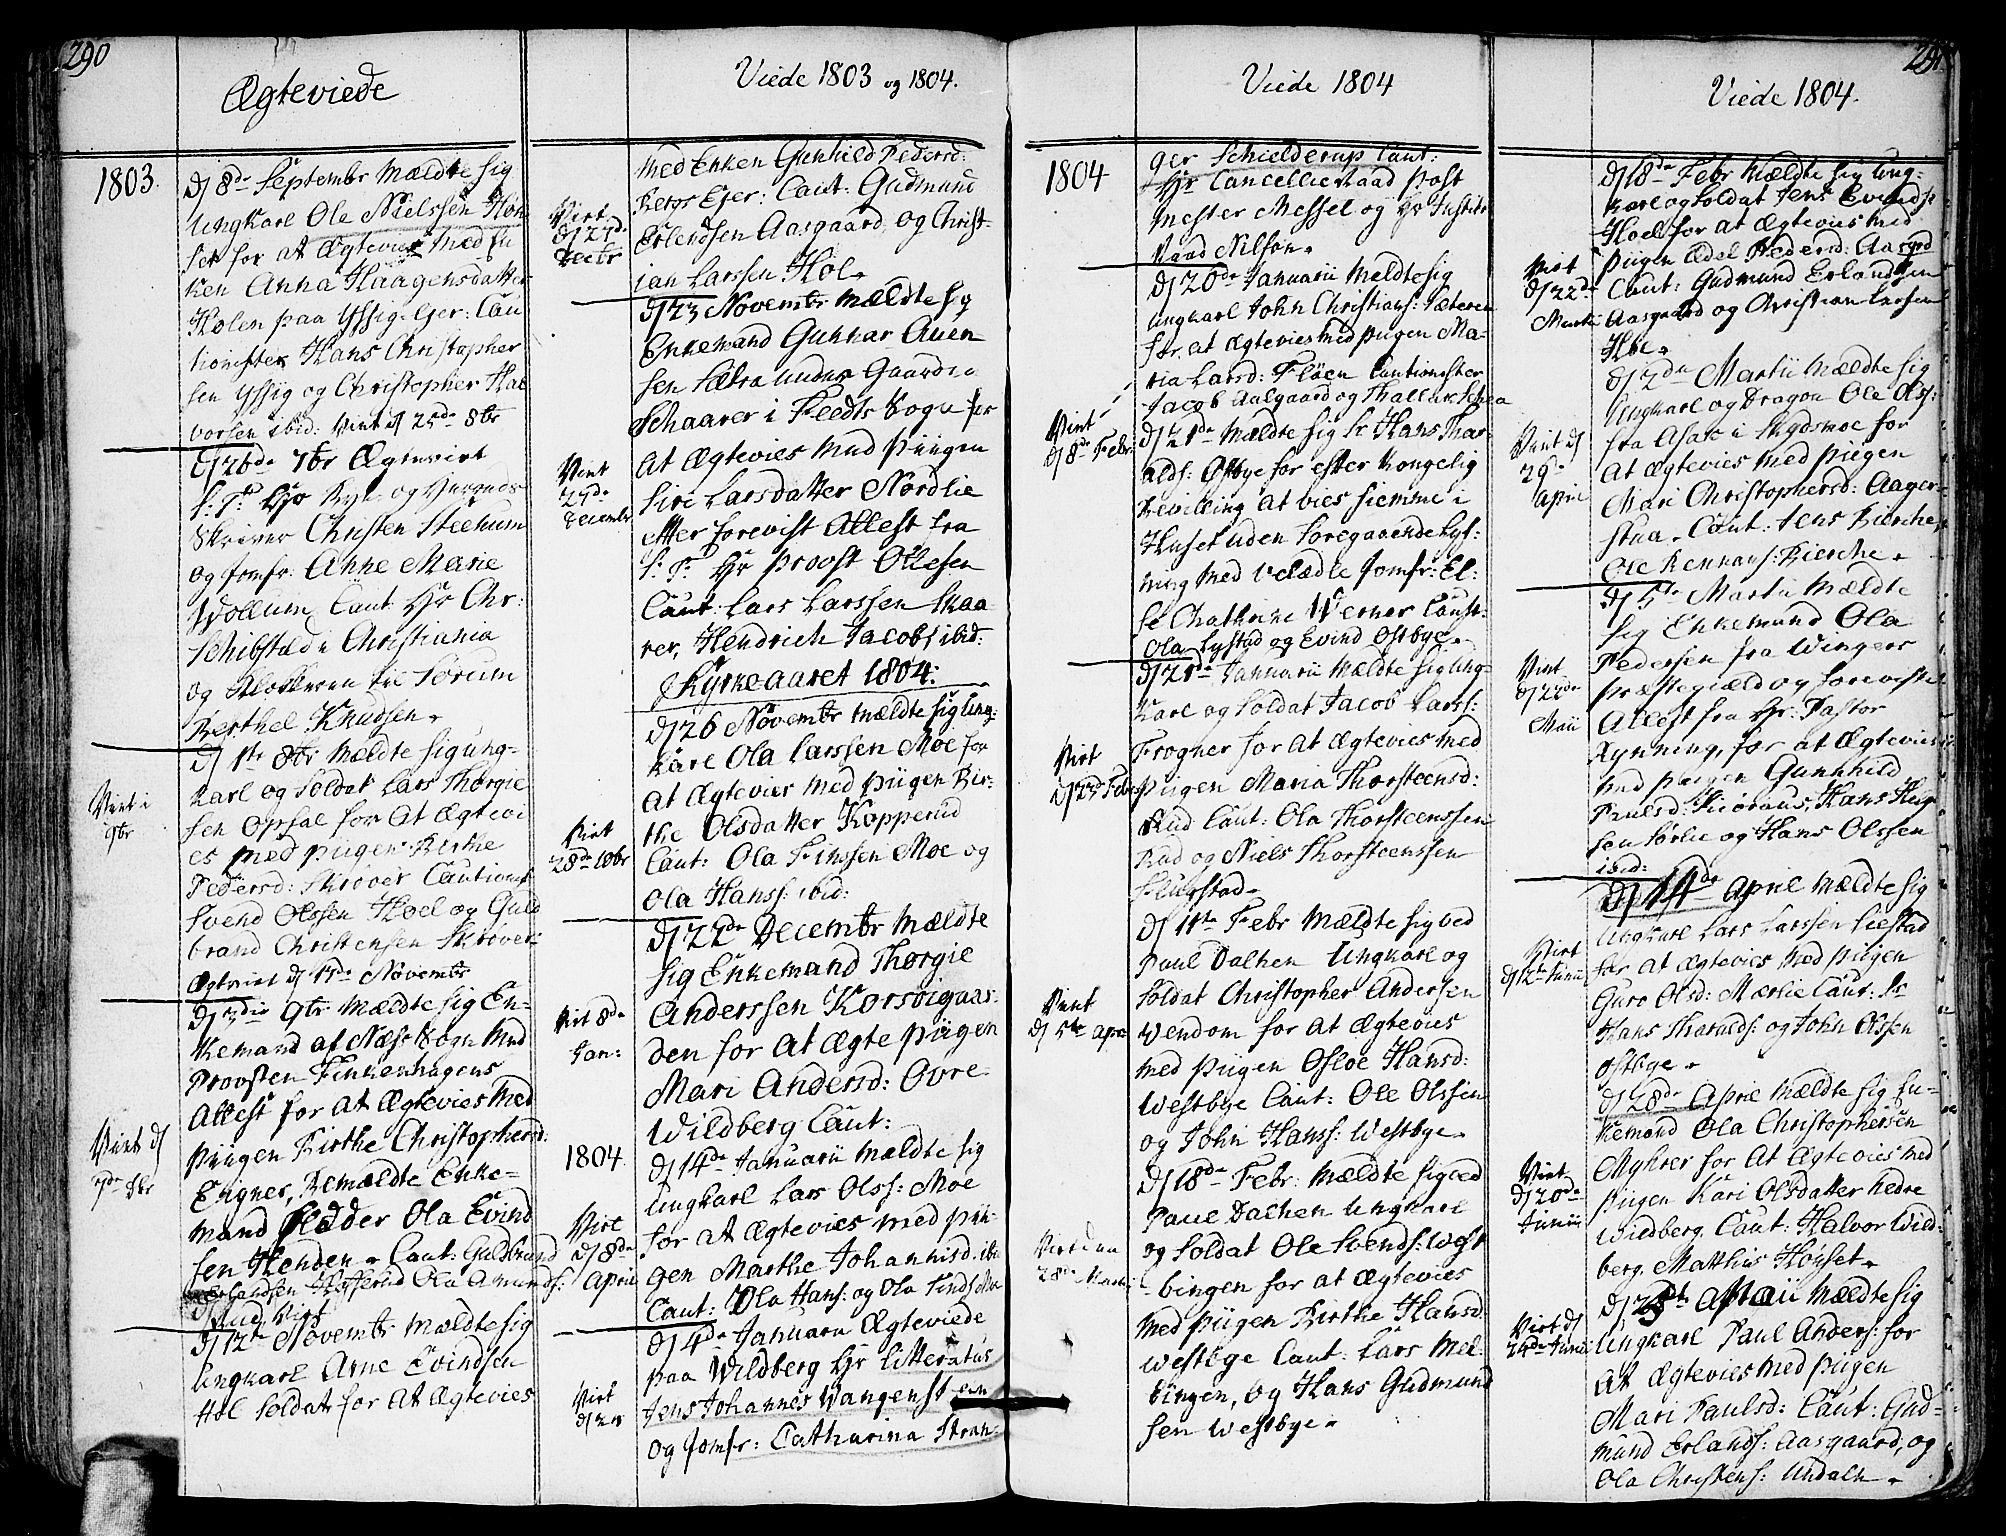 290
Ægteviede
Viede 1803 og 1804.
1803.
d 8de Septembr Mældte sig
Ungkarl Ole Nielssen Høn
set for at Ægtevies med En
ken Anna Haagensdatter
Holen paa Yssig-Eger: Cau
tionister Hans Christopher
sen Yssig og Christopher Hal
vorsen ibid: Viet d 25de 8br
d 26de 7br Ægteviet
S: T: Hr Bye- og
Skriver Christen Steehum
og Jomfr: Anne Marie
Wollum, Caut: Hr Chr:
Schibsted i Christiania
og Klokkeren til Sørum
Berthel Knudsen.
Viet i
9br
d 1te 8br Mældte sig Ung-
karl og Soldat Lars Thorgie
sen Opsal for at Ægtevi
es med Piigen Berthe
Pedersd: Skrøver Cautionist
Svend Olssen Hoel og Guld
brand Christensen Skrøver
Ægteviet d 15de Novembr
Viet d
7de 8br
d 3die 9br Mældte sig En-
kemand af Næss Sogn med
Provsten Finkenhagens
Attest for at Ægtevies med
Piigen Birthe Christophersd:
Eigner, bemældte Enke-
mand heder Ola Evind
sen Henden. Caut: Guldbrand
Erlandsen Hexerud Ola Amunds:
Rud Viet
d 12te Novembr Mældte sig
Ungkarl Arne Evindsen
Høl Soldat for at Ægtevies
Viet
d 27de
Decbr
med Enken Gunhild Pedersd:
Bergs Eger: Caut: Gudmund
Erlendsen Aasgaard, og Christ-
ian Larssen Høl.
Viet
29de
Decembr
d 23 Novembr Mældte sig
Enkemand Gunnar Aven
sen Sætra under Gaarden
Schaarer i Feeds Sogn for
at Ægtevies med Piigen
Siri Larsdatter Nordlie
efter forevist Attest fra
S: T: Hr Provst Ottesen
Caut: Lars Larssen Skaa-
rer, Hendrich Jacobs: ibid:
Kyrkeaaret 1804:
Viet
28de 10br
d 26 Novembr Mældte sig Ung-
karl Ola Larssen Moe for
at Ægtevies med Piigen Bir-
the Olsdatter Kopperud
Caut: Ola Finssen Moe og
Ola Hanss: ibid:
Viet 8de
Jan:
d 22de Decembr Mældte
sig Enkemand Thorgie
Anderssen Korsøigaar-
den for at Ægte Piigen
Mari Andersd: Øvre
Wildberg Caut:
1804.
Viet
d 8de
April
d 14de Januarii Mældte sig
Ungkarl Lars Olss: Moe
for at Ægtevies med Pii-
gen Marthe Johannisd: ibd
Caut: Ola Hans: og Ola
Viet
d 24
d 4de Januarii Ægteviede
paa Wildberg Hr Litteratus
Jens Johannes Wangenstein
og Jomfr: Catharina Stran-
291
Viede 1804
Viede 1804.
1804
ger Schielderup Caut:
Hr Cancellieraad Post
Mester Messel og Hr Justits
Raad Nilson.
Viet
d 8de Febr
d 20de Januarii Meldte sig
Ungkarl John Christians: Sæteren
for at Ægtevies med Piigen Ma-
ria Larsd: Fløen Cautionister
Jacob Aalgaard og Thalluk
d 21de Mældte sig Sr Hans Thor-
alds: Østbye for efter Kongelig
Bevilling at vies hiemme i
Huset uden foregaaende Lys-
ning med Velædle Jomfr: El-
se Chatrine Werner Caust:
Ola Lystad og Evind Østbye.
Viet
d 23 Febr
d 21de Januarii Mældte sig Ung-
karl og Soldat Jacob Larss:
Frogner for at Ægtevies med
Piigen Maria Thorsteensd:
Rud Caut: Ola Thorsteenssen
Rud og Niels Thorsteenssen
Huustad.
Viet
d 5te Apr:
d 11te Febr Mældte sig ved
Paul Dalhen Ungkarl og
Soldat Christopher Andersen
Wendom for at Ægtevies
med Piigen Osloe Hansd:
Westbye Caut: Ole Olssen
og John Hanss: Westbye.
Viet den
28de Marti
d 18de Febr: Mældte sig ved
Paul Dalhen Ungkarl
og Soldat Ole Svends: West
bingen for at Ægtevies
med Piigen Birthe Hansd:
Westbye Caut: Lars Mel-
bingen, og Hans Gudmund
sen Westbye.
Viet
d 22de
Martii
d 18de Febr Mældte sig Ung-
karl og Soldat Jens Evinds:
Hoel for at Ægtevies med
Piigen Ædel Pedersd: Aasgrd
Caut: Gudmund Erlandsen
Aasgaard og Christian Larsen
Høl.
Viet d
29de
April
d 2de Martii Mældte sig
Ungkarl og Dragon Ole Ols:
fra Asak i Skydsmoe for
at Ægtevies med Piigen
Mari Christophersd: Aager-
staa. Caut: Jens Bierche
Ole Rennans: Bierche.
Viet
d 22de
Maii
d 5te Martii Mældte
sig Enkemand Ola
Pedersen fra Wingers
Præstegield og foreviste
Attest fra Hr: Pastor
Rynning, for at Ægtevies
med Piigen Gunnhild
Paulsd: Hans
sen Sørlie og Hans Olssen
ibid:
Viet
d 12te Junii
d 14de April Mældte sig
Ungkarl Lars Larssen Liestad
for at Ægtevies med Piigen
Guro Olsd: Mærlie Caut: Sr
Hans Tharalds: og John Olssen
Østbye.
Viet
d 20de
Junii
d 28de April Mældte sig En-
kemand Ola Christophersen
Myhrer for at Ægtevies med
Piigen Kari Olsdatter Nedre
Wildberg. Caut: Halvor Wild-
berg, Matthis Hønset.
Viet d
24de Junii
d Maii Mældte sig
Ungkarl Paul Anders: for
at Ægtevies med Piigen
Mari Paulsd: Caut: Gud-
mund Erlands: Aasgaard, og
Ola Christens: Undaln.